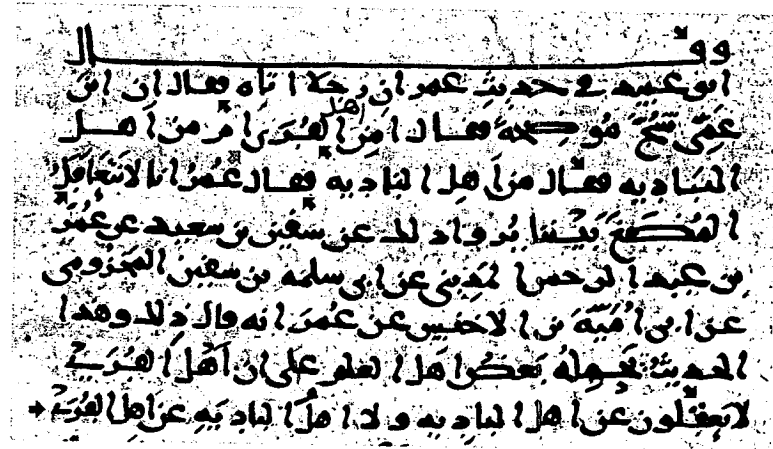 وقال
ابو عبيد في حديث عمر ان رجلا اتاه فقال ان ابن
عمي شج موضحة فقال امن اهل القرى ام من اهل
البادية فقال من اهل البادية فقال عمر انا لا نتعاقل
المضغ بيننا يروا ذلك عن سفين بن سعيد عن عمر
بن عبد الرحمن المديني عن ابي سلمة بن سفين المخزومي
عن ابي امية بن الاخنس عن عمر انه قال ذلك وهذا
الحديث يحمله بعض اهل العلم على ان اهل القرى
لا يعقلون عن اهل البادية ولا اهل البادية عن اهل القرى